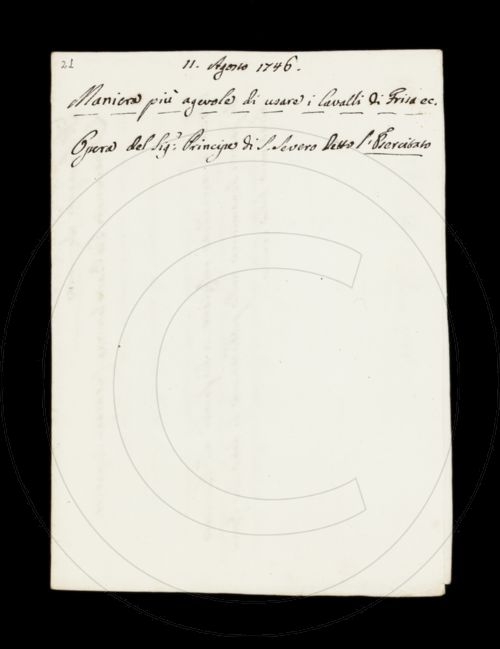 21
11. Agosto 1746.
Maniera più agevole di usare i Cavalli di Frisa ec.
Opera del Sig.r Principe di S. Severo detto l'Esercitato